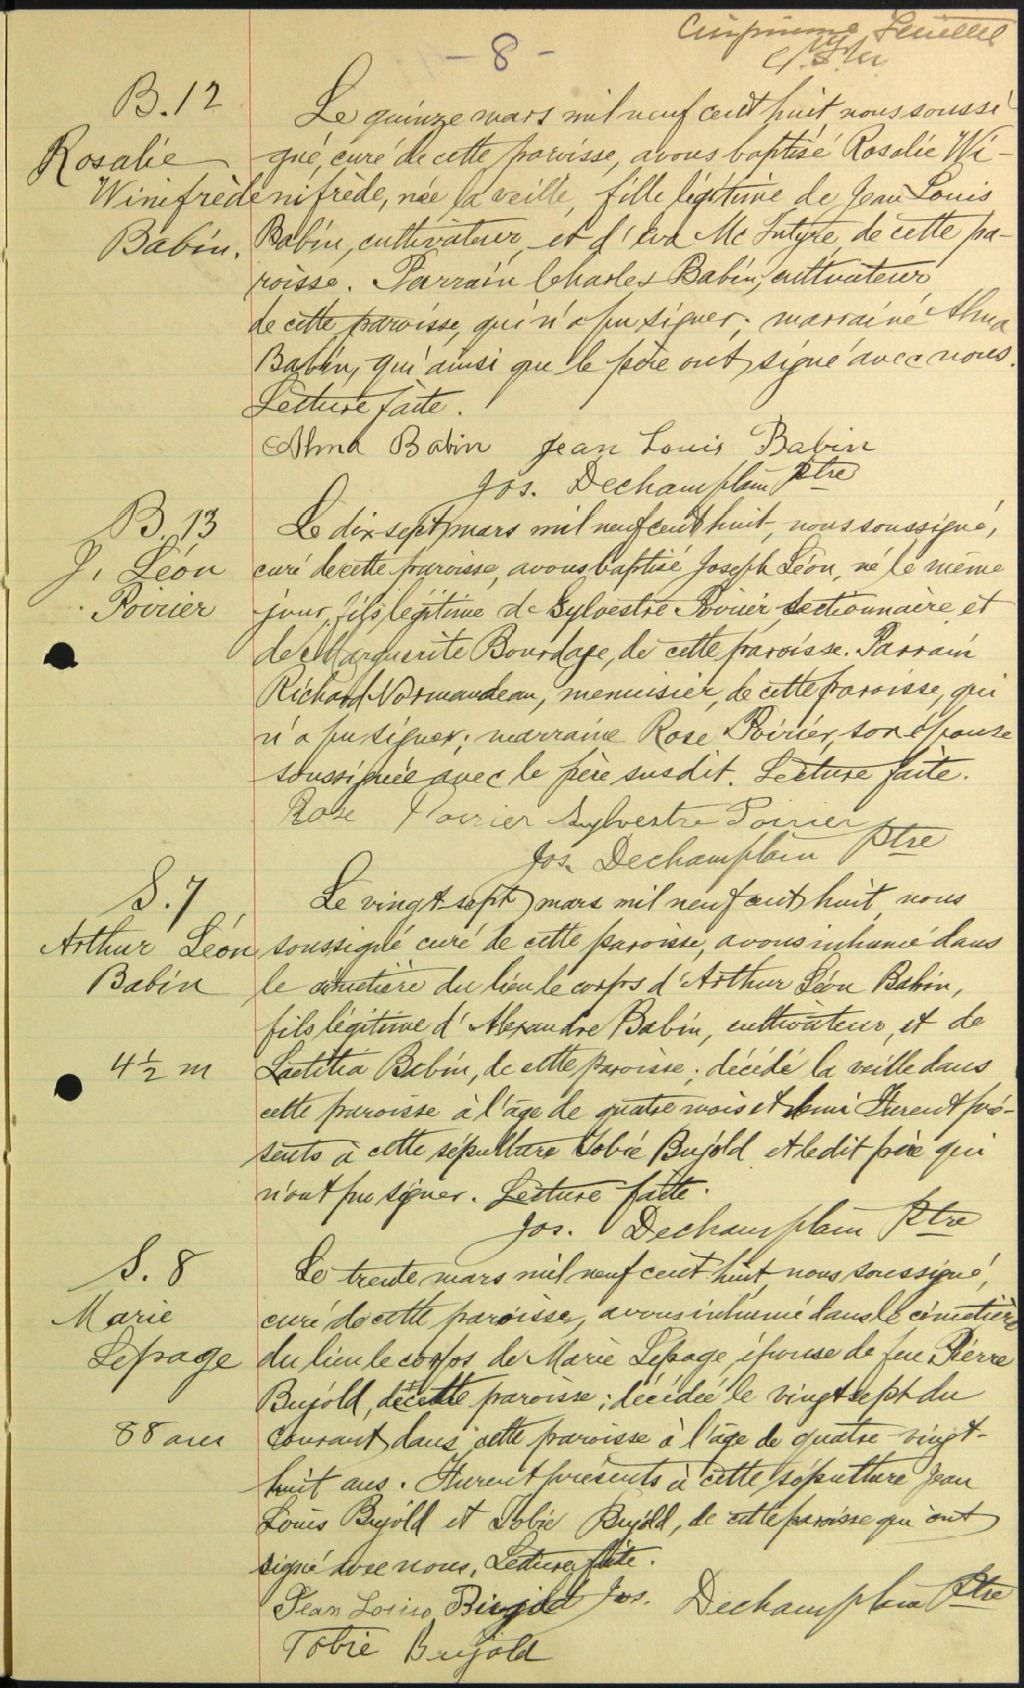 Cinquième Feuillet
- 8 -
B. 12
Rosalie
Winifrède
Babin.
Le quinze mars mil neuf cent huit nous soussi
gné, curé de cette paroisse, avons baptisé Rosalie Wi-
nifrède, née la veille, fille légitime de Jean Louis
Babin, cultivateur et d'Eva Mc Intyre, de cette pa-
roisse. Parrain Charles Babin, cultivateur
de cette paroisse, qui n'a pu signer; marraine Alma
Babin, qui ainsi que le père ont signé avec nous.
Lecture faite.
Alma Babin Jean Louis Babin
Jos. Dechamplain Ptre
B. 13
J. Léon
Poirier
Le dix-sept mars mil neuf cent huit, nous soussigné,
curé de cette paroisse, avons baptisé Joseph Léon, né le même
jour, fils légitime de Sylvestre Poirier sectionnaire et
de Marguerite Bourdage, de cette paroisse. Parrain
Richard Normandeau, menuisier, de cette paroisse, qui
n'a pu signer; marraine Rose Poirier, son épouse
soussignée avec le père susdit. Lecture faite.
Rose Poirier Sylvestre Poirier
Jos. Dechamplain Ptre
S. 7
Arthur Léon
Babin
4 1/2 m
Le vingt-sept mars mil neuf cent huit, nous
soussigné curé de cette paroisse, avons inhumé dans
le cimetière du lieu le corps d'Arthur Léon Babin,
fils légitime d'Alexandre Babin, cultivateur, et de
Laetitia Babin, de cette paroisse; décédé la veille dans
cette paroisse à l'âge de quatre mois et demi. Furent pré-
sents à cette sépulture Tobie Bujold et ledit père qui
n'ont pu signer. Lecture faite.
Jos. Dechamplain Ptre
S. 8
Marie
Lepage
88 ans
Le trente mars mil neuf cent huit, nous soussigné,
curé de cette paroisse, avons inhumé dans le cimetière
du lieu le corps de Marie Lepage, épouse de feu Pierre
Bujold, de cette paroisse; décédée le vingt sept du
courant dans cette paroisse à l'âge de quatre-vingt-
huit ans. Furent présents à cette sépulture Jean
Louis Bujold et Tobie Bujold, de cette paroisse qui ont
signé avec nous. Lecture faite.
Jean Louis Bujold Jos. Dechamplain Ptre
Tobie Bujold